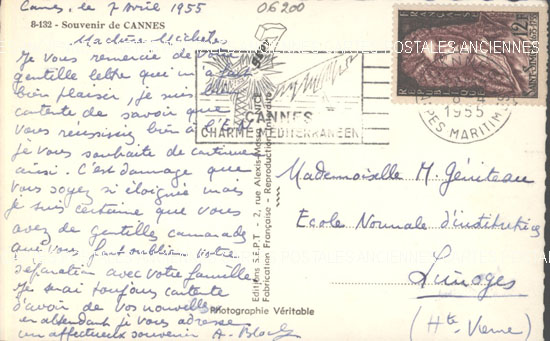 Cannes, le 7 Avril 1955
06200
8-132 - Souvenir de CANNES
Je vous remercie de votre
gentille lettre qui m'a fait
bien plaisir, je suis bien
contente de savoir que
vous réussissez bien à l'E.N.
je vous souhaite de continuer
ainsi. C'est dommage que
vous soyez si éloignée mais
je suis certaine que vous
avez de gentilles camarades
que vous font oublier votre
séparation avec votre famille.
Je serai toujours contente
d'avoir de vos nouvelles
en attendant je vous adresse
un affectueux souvenir
Editions S.E.P.T - 2, rue Alexis-Mossa
Fabrication Française - Reproduction interdite
Photographie Véritable
CANNES
CHARME MEDITERRANEEN
12F
1955
ALPES MARITIMES
POSTALES ANCIENNES
Mademoiselle M. Géniteau
Ecole Normale d'institutrices
Limoges
(Hte Vienne)
CARTES POSTALES ANCIENNES